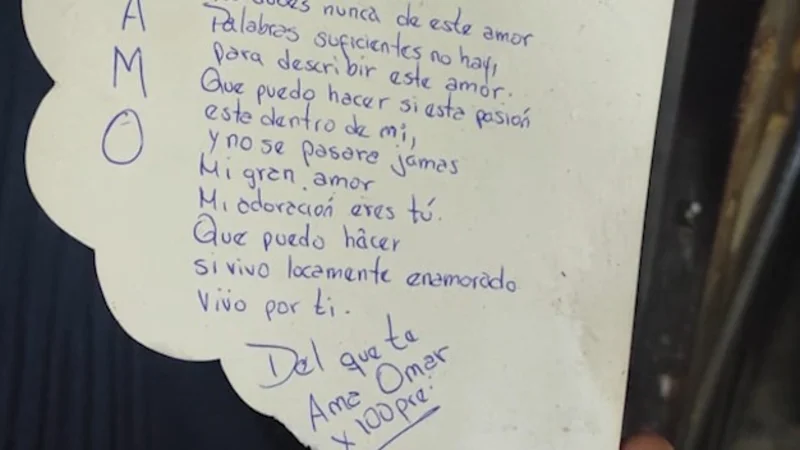 dudes nunca de este amor
A
Palabras suficientes no hay,
M
para describir este amor.
Que puedo hacer si esta pasión
O
esta dentro de mi,
y no se pasare jamas
Mi gran amor
Mi adoración eres tú.
Que puedo hacer
si vivo locamente enamorado
Vivo por ti.
Del que te
Ama Omar
x 100pre.